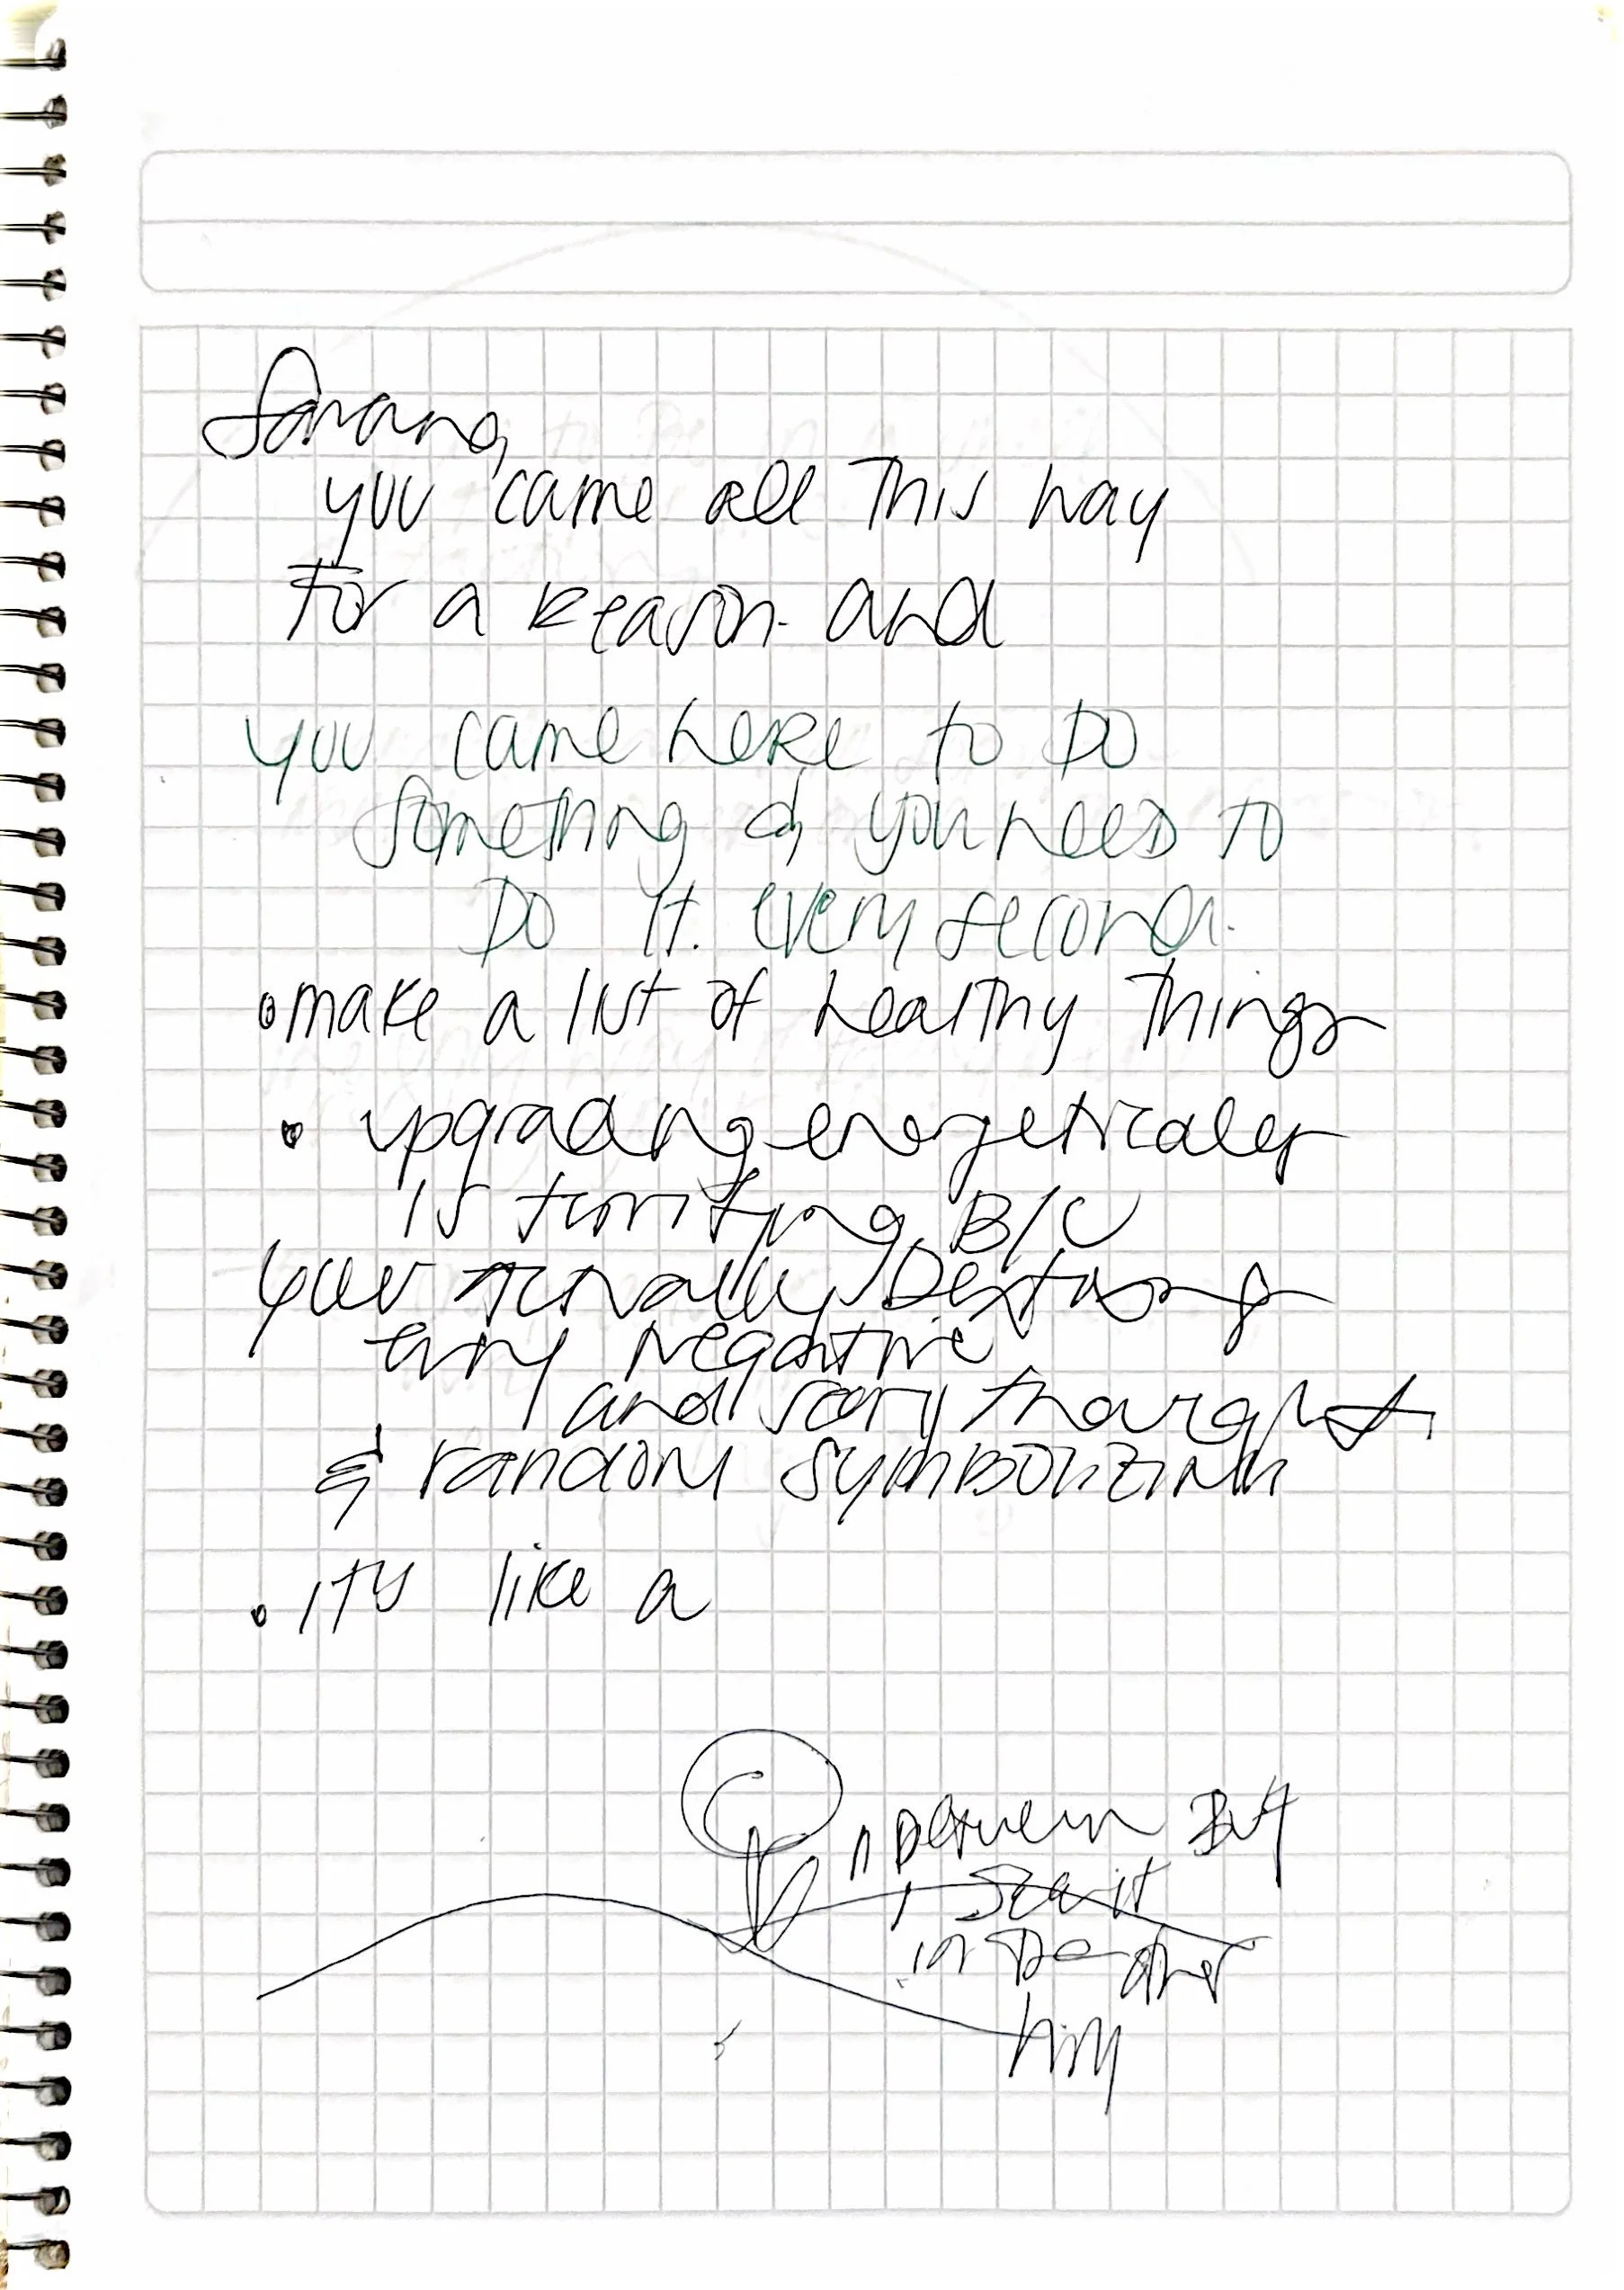 you came all this way
For a Reason. and
you came here to DO
something & you need to
DO it. every second.
•make a list of healthy things
• upgrading energetically
is terrifying B/C
your actually Destroying
any negative
and scary thoughts
& random symbolizink
• it's like a
But
see it
in the other